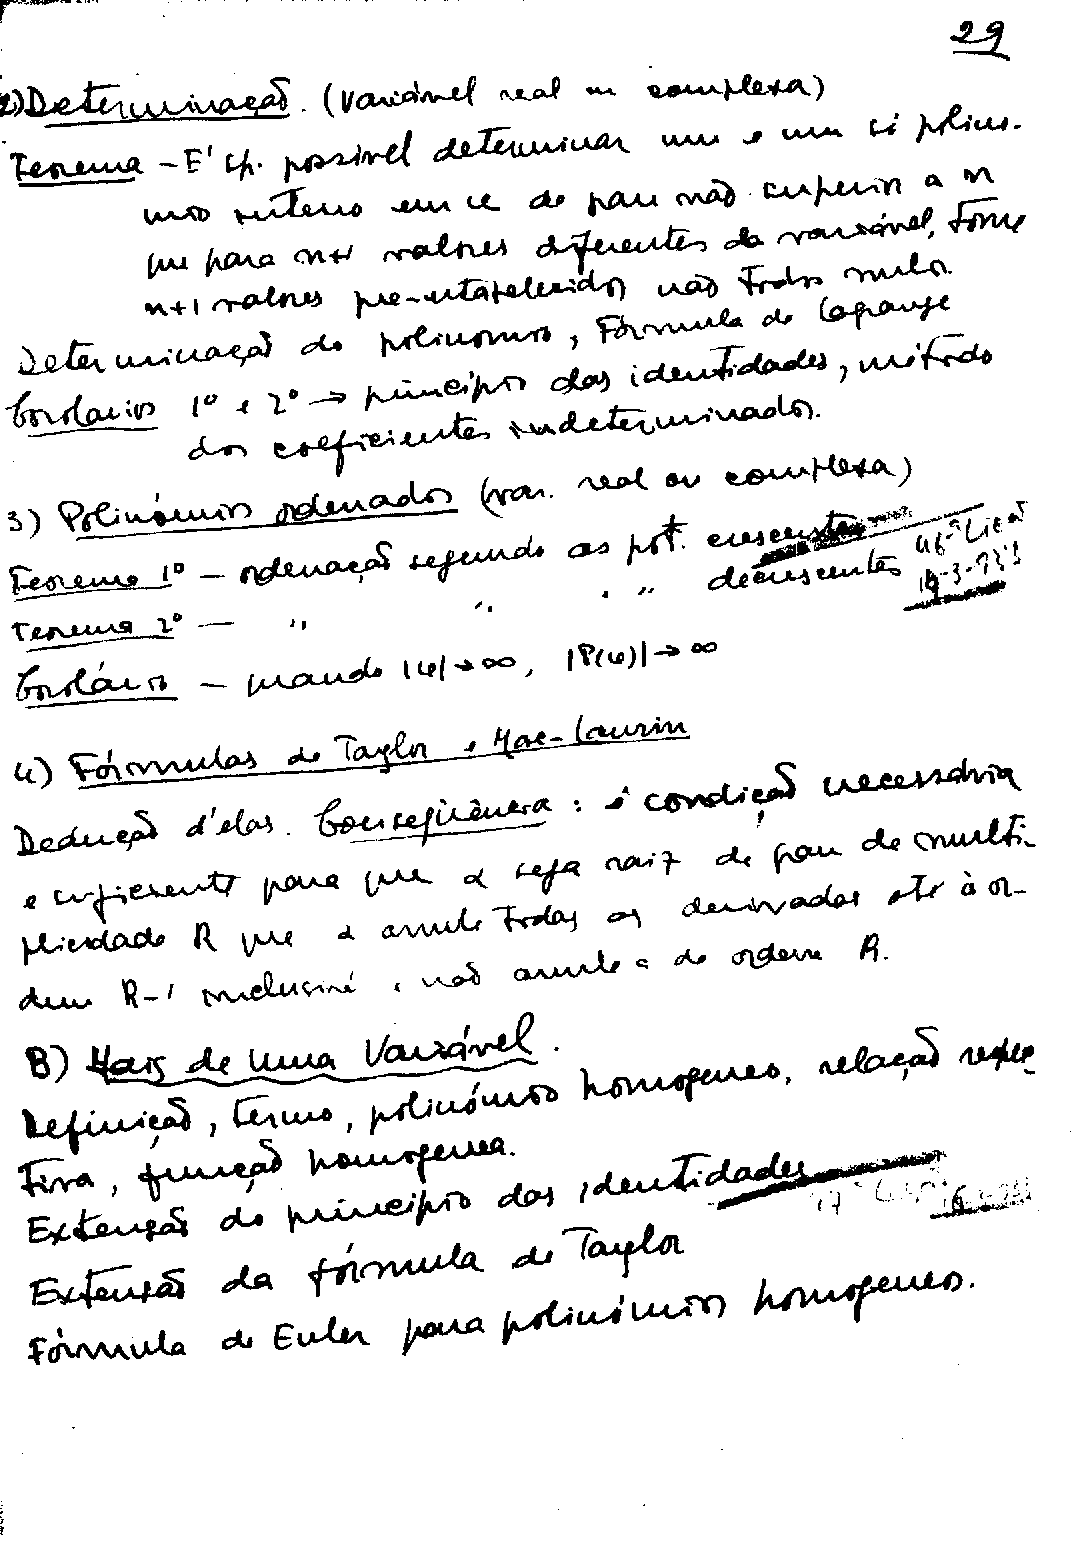 29
2) Determinação. (Variável real ou complexa)
Teorema – E' sp. possível determinar um e um só polinó-
mio inteiro em u de grau não superior a n
que para n+1 valores diferentes da variável, tome
n+1 valores pre-estabelecidos não todos nulos.
Determinação do polinomio, Fórmula de Lagrange
Corolarios 1º e 2º → princípio das identidades, método
dos coeficientes indeterminados.
3) Polinómios ordenados (var. real ou complexa)
Teorema 1º – ordenação segundo as pot. crescentes
46ª Lição
Teorema 2º – " " " " decrescentes
Corolário – quando |u| → ∞, |P(u)| → ∞
4) Fórmulas de Taylor e Mac-Laurin
Dedução d'elas. Conseqüência: é condição necessária
e suficiente para que α seja raiz de grau de multi-
plicidade R que α anule todas as derivadas até à or-
dem R-1 inclusivé e não anule a de ordem R.
B) Mais de Uma Variável.
Definição, termo, polinómio homogeneo, relação respec-
tiva, função homogenea.
Extensão do principio das identidades
Extensão da fórmula de Taylor
Fórmula de Euler para polinómios homogeneos.